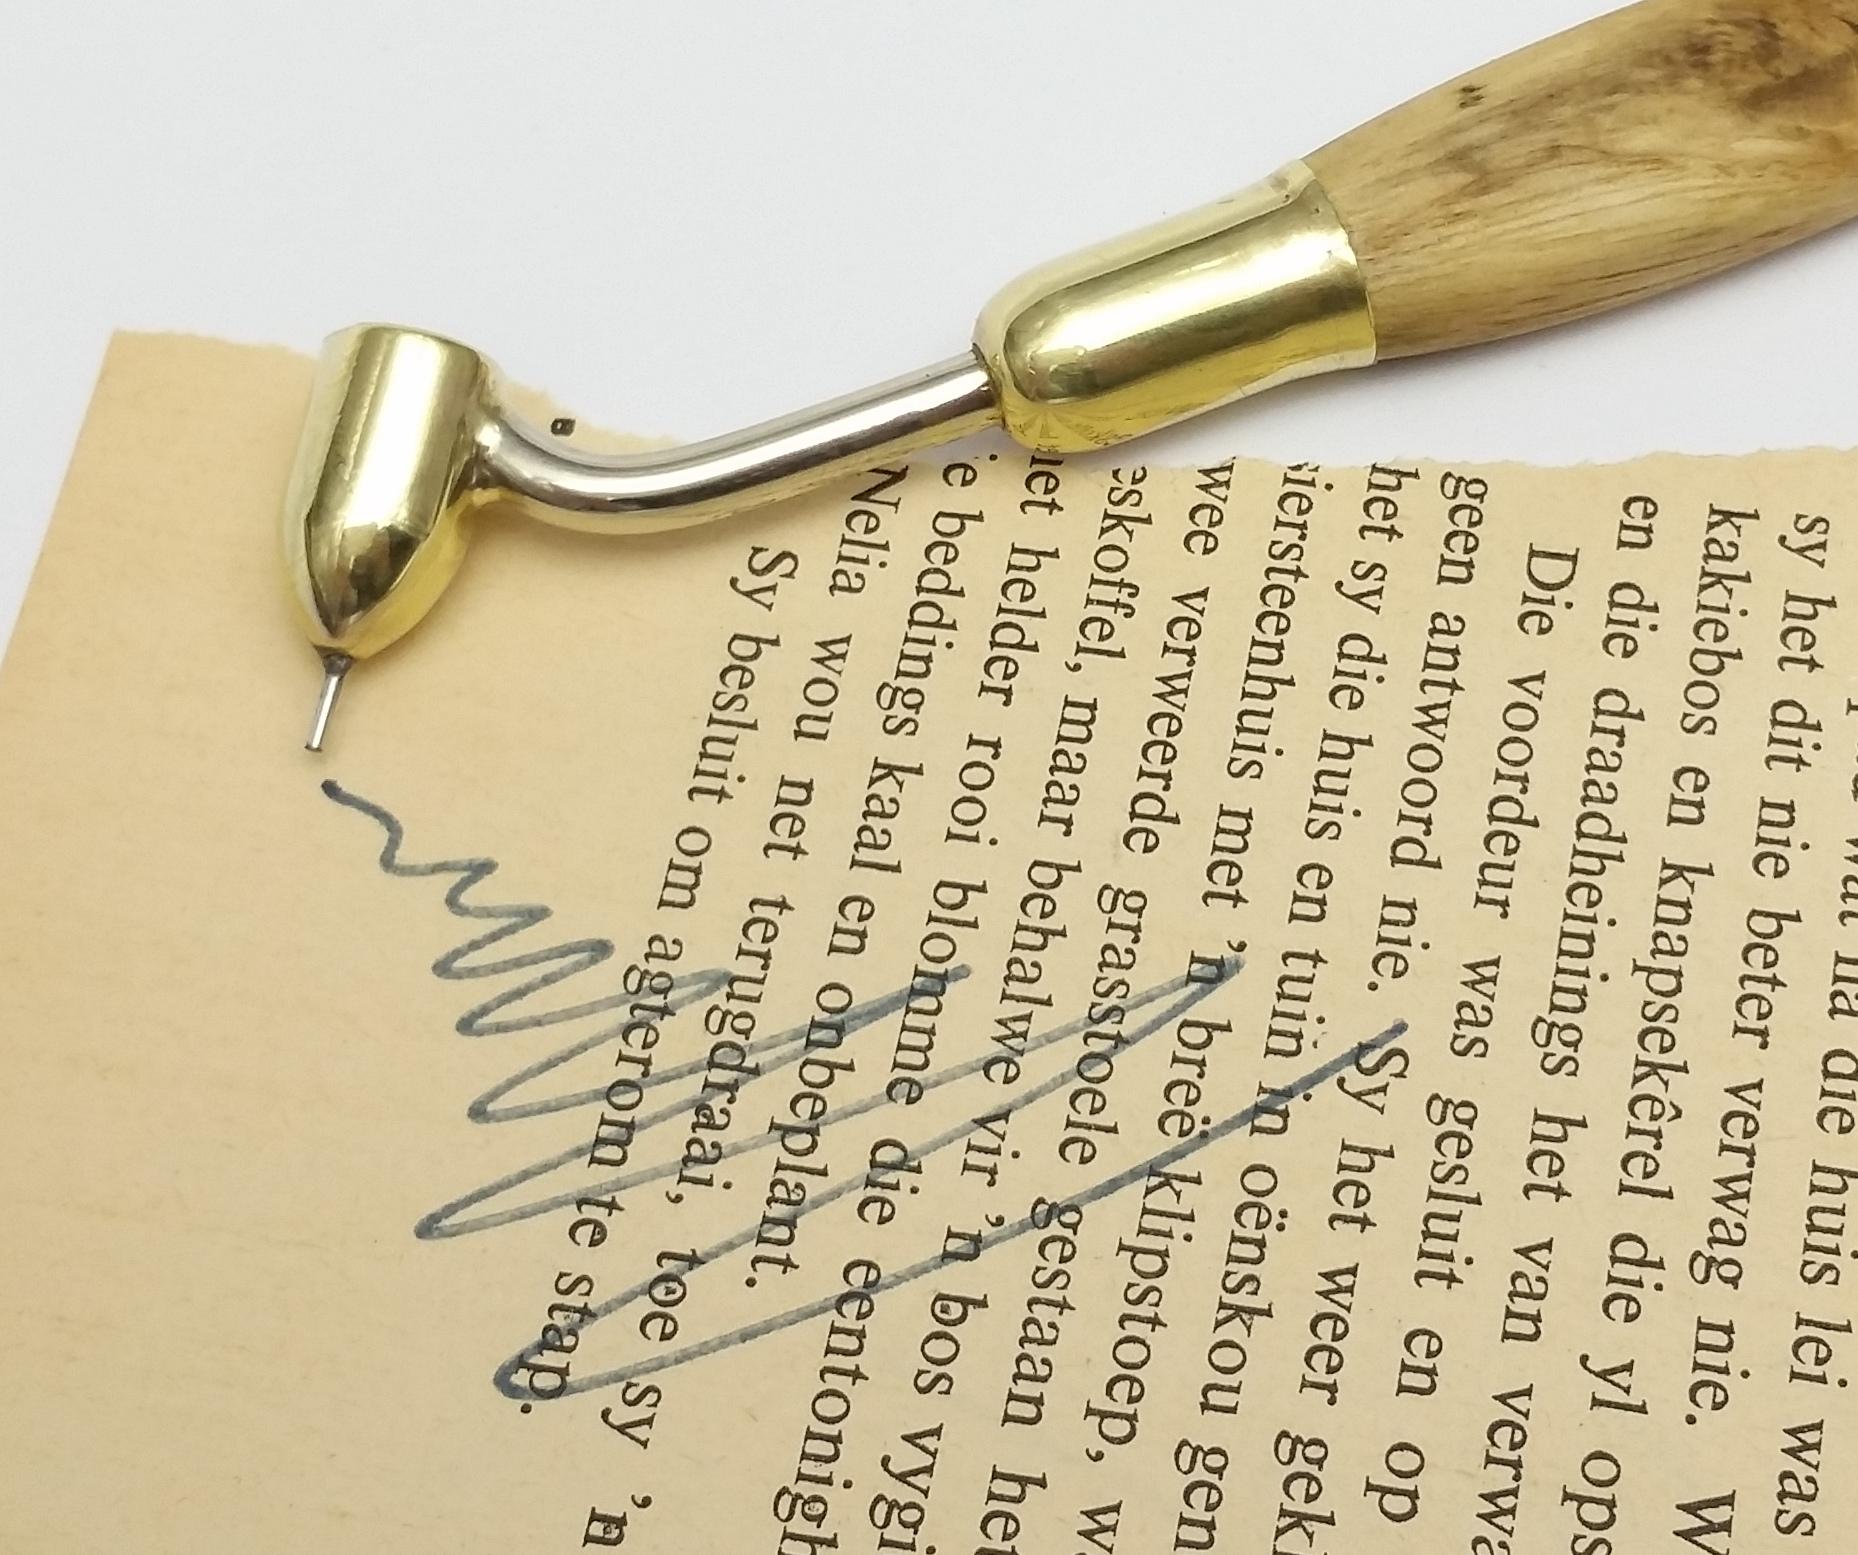 wat na die huis lei was
sy het dit nie beter verwag nie. W
kakiebos en knapsekêrel die yl ops
en die draadheinings het van verwa
Die voordeur was gesluit en op
geen antwoord nie. Sy het weer gekl
het sy die huis en tuin in oënskou gen
siersteenhuis met 'n breë klipstoep, w
wee verweerde grasstoele gestaan het
eskoffel, maar behalwe vir 'n bos vygi
iet helder rooi blomme die eentonigh
e beddings kaal en onbeplant.
Nelia wou net terugdraai, toe sy 'n
Sy besluit om agterom te stap.